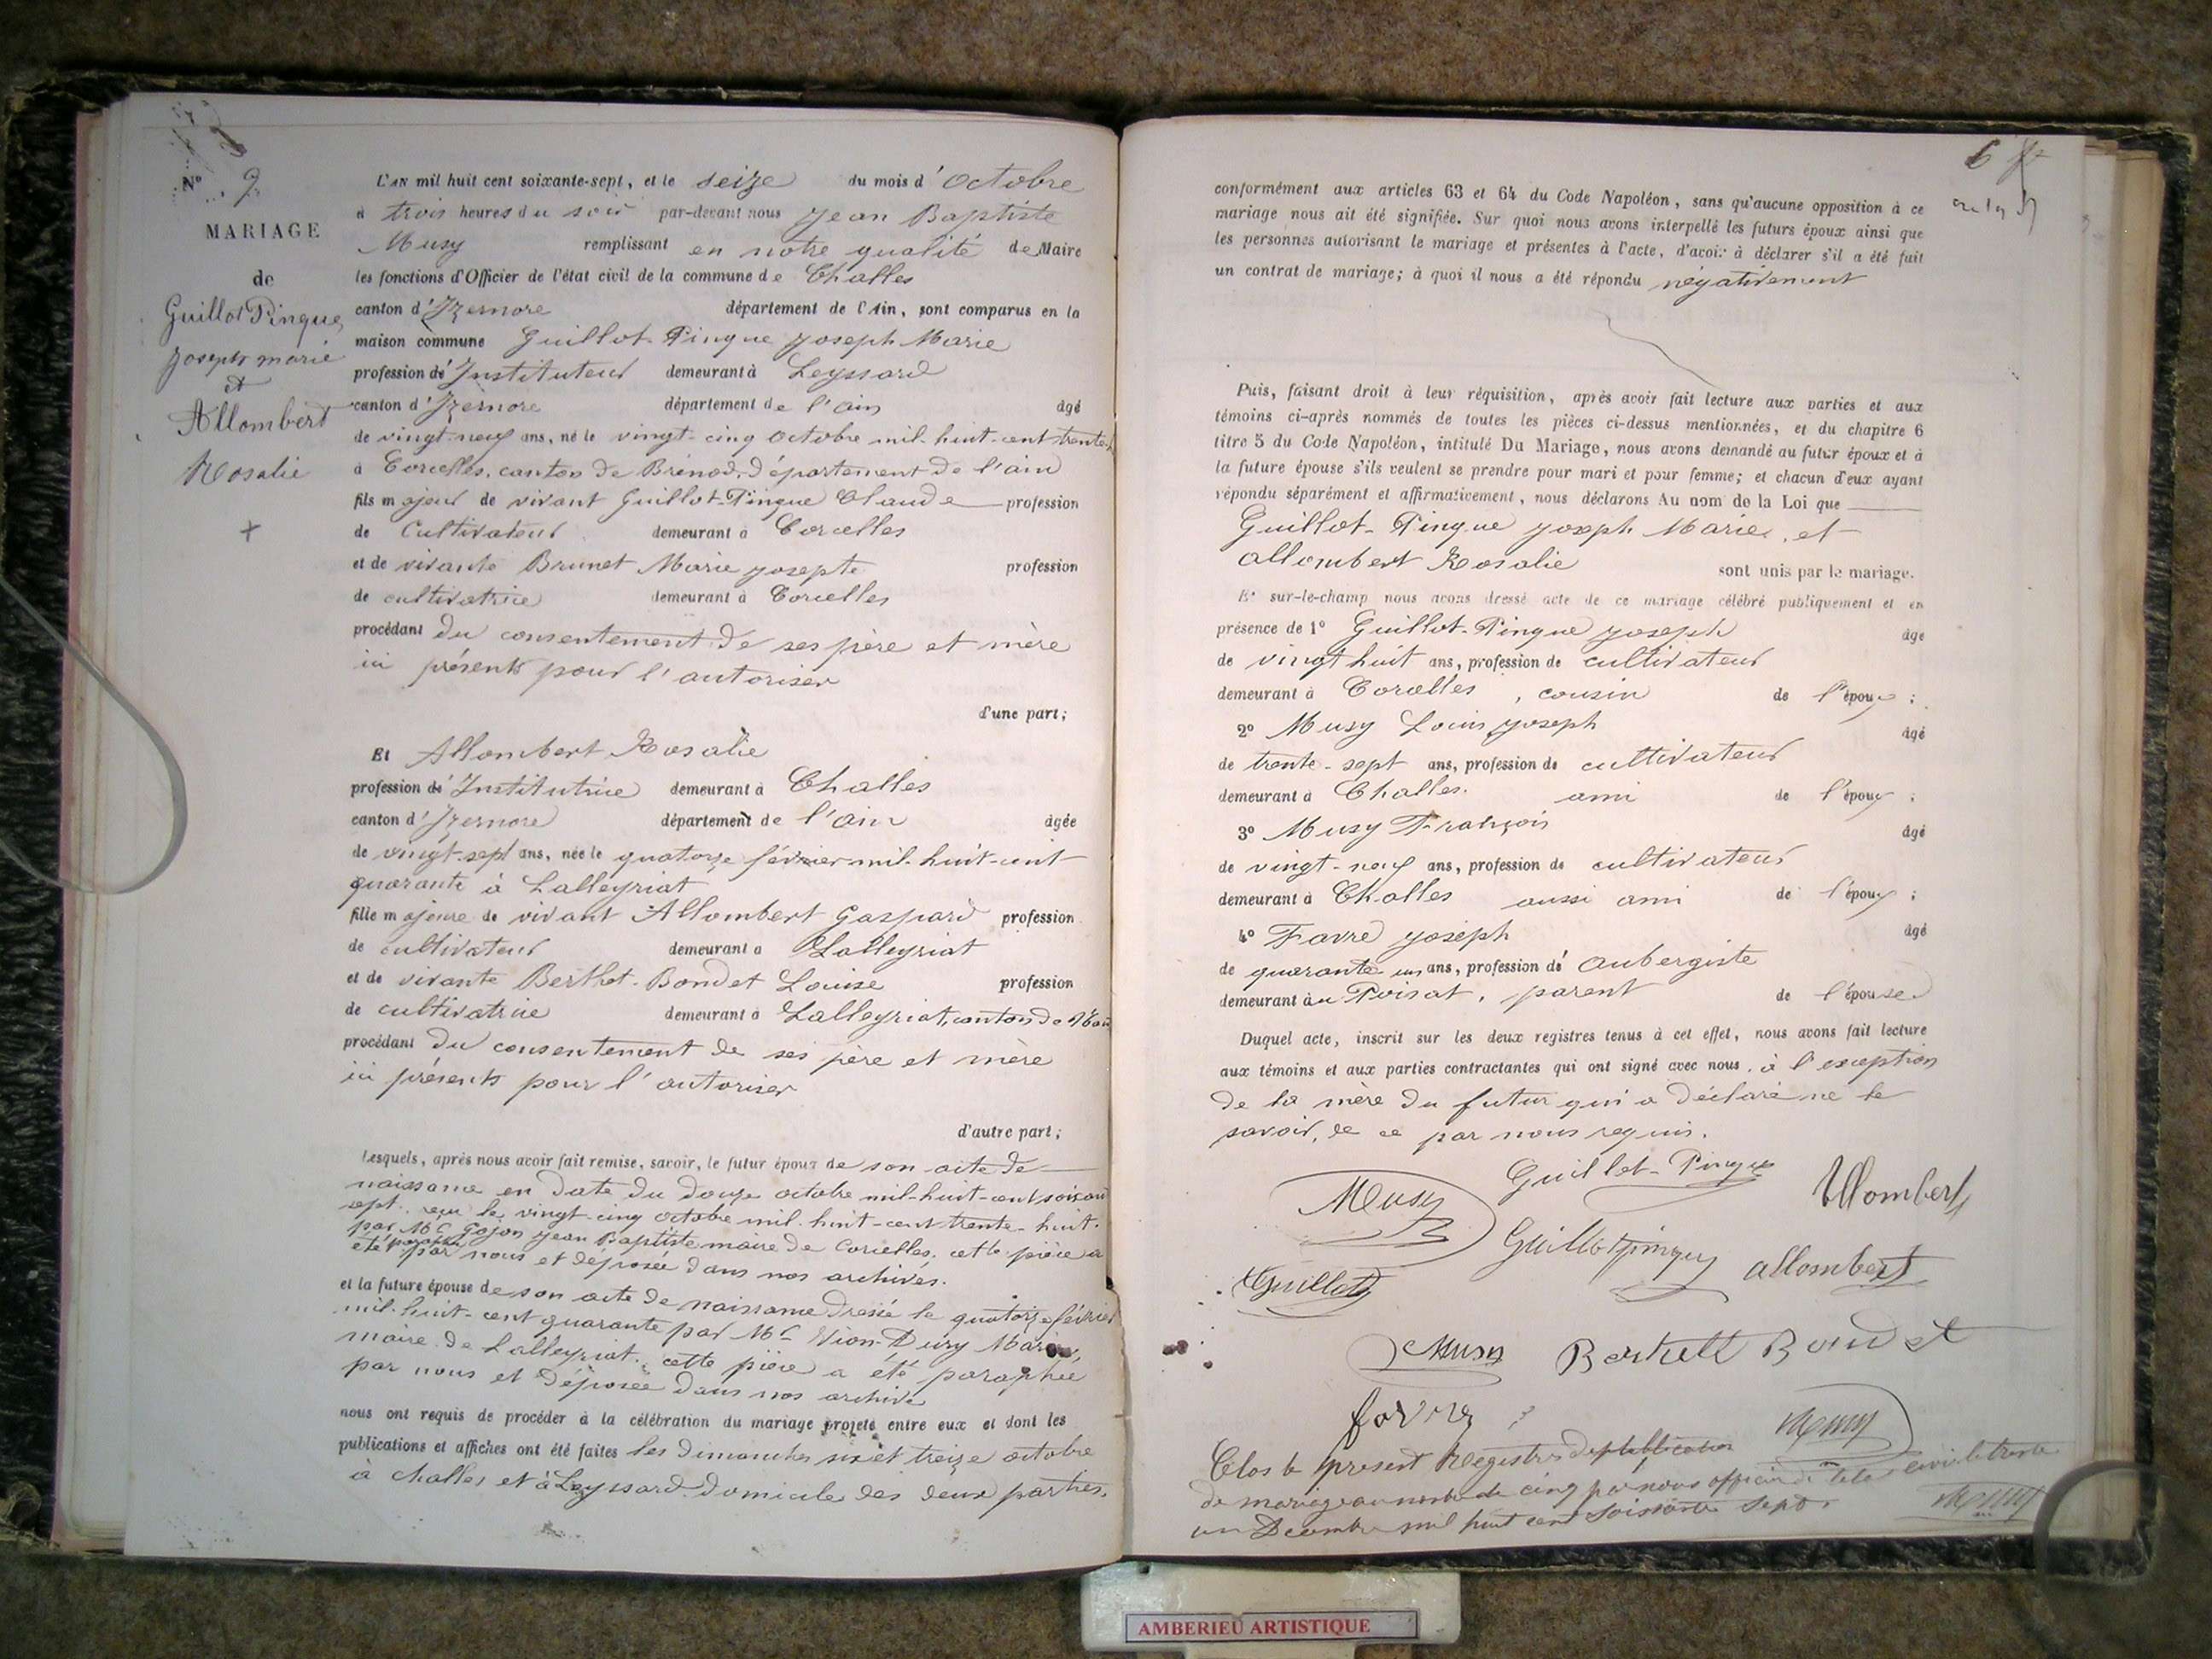 N° 2
MARIAGE
de
Guillot Pingue
joseph marie
et
Allombert
Rosalie
L'AN mil huit cent soixante-sept, et le seize du mois d'Octobre
à trois heures du soir par-devant nous Jean Baptiste
Musy remplissant en notre qualité de Maire
les fonctions d'Officier de l'état civil de la commune de Challes
canton d'Izernore département de l'Ain, sont comparus en la
maison commune Guillot-Pingue Joseph Marie
profession d'Instituteur demeurant à Leyssard
canton d'Izernore département de l'ain âgé
de vingt-neuf ans, né le vingt-cinq octobre mil-huit-cent trente
à Corcelles, canton de Brénod, département de l'ain
fils majeur de vivant Guillot-Pingue Claude profession
de Cultivateur demeurant à Corcelles
et de vivante Brunet Marie josepte profession
de cultivatrice demeurant à Corcelles
procédant du consentement de ses père et mère
ici présents pour l'autoriser
d'une part;
Et Allombert Rosalie
profession d'Institutrice demeurant à Challes
canton d'Izernore département de l'Ain âgée
de vingt-sept ans, née le quatorze février mil-huit-cent
quarante à Lalleyriat
fille majeure de vivant Allombert Gaspard profession
de cultivateur demeurant à Lalleyriat
et de vivante Berthet-Bondet Louise profession
de cultivatrice demeurant à Lalleyriat, canton de
procédant du consentement de ses père et mère
ici présents pour l'autoriser
d'autre part;
Lesquels, après nous avoir fait remise, savoir, le futur époux de son acte de
naissance en date du douze octobre mil-huit-cent soixante
sept. reçu le vingt-cinq octobre mil-huit-cent trente-huit.
par Mr Gojon Jean Baptiste maire de Corcelles, cette pièce a
été paraphée par nous et déposée dans nos archives.
et la future épouse de son acte de naissance dressé le quatorze février
mil-huit-cent quarante par Mr Vion-Dury
maire de Lalleyriat. cette pièce a été paraphée
par nous et déposée dans nos archive
nous ont requis de procéder à la célébration du mariage projeté entre eux et dont les
publications et affiches ont été faites les dimanches six et treize octobre
à challes et à Leyssard domicile des deux parties.
6
conformément aux articles 63 et 64 du Code Napoléon, sans qu'aucune opposition à ce
mariage nous ait été signifiée. Sur quoi nous avons interpellé les futurs époux ainsi que
les personnes autorisant le mariage et présentes à l'acte, d'avoir à déclarer s'il a été fait
un contrat de mariage; à quoi il nous a été répondu négativement
Puis, faisant droit à leur réquisition, après avoir fait lecture aux parties et aux
témoins ci-après nommés de toutes les pièces ci-dessus mentionnées, et du chapitre 6
titre 5 du Code Napoléon, intitulé Du Mariage, nous avons demandé au futur époux et à
la future épouse s'ils veulent se prendre pour mari et pour femme; et chacun d'eux ayant
répondu séparément et affirmativement, nous déclarons Au nom de la Loi que
Guillot-Pingue Joseph Marie, et
allombert Rosalie sont unis par le mariage.
Et sur-le-champ nous avons dressé acte de ce mariage célébré publiquement et en
présence de 1° Guillot-Pingue joseph âgé
de vingt huit ans, profession de cultivateur
demeurant à Corcelles, cousin de l'époux;
2° Musy Louis joseph âgé
de trente-sept ans, profession de cultivateur
demeurant à Challes. ami de l'époux;
3° Musy François âgé
de vingt-neuf ans, profession de cultivateur
demeurant à Challes aussi ami de l'époux;
4° Favre joseph âgé
de quarante un ans, profession d'aubergiste
demeurant au Poisat, parent de l'épouse
Duquel acte, inscrit sur les deux registres tenus à cet effet, nous avons fait lecture
aux témoins et aux parties contractantes qui ont signé avec nous, à l'exception
de la mère du futur qui a déclaré ne le
savoir, de ce par nous requis.
Musy Guillot-Pingue Allombert
Guillot Guillotpingue allombert
Musy Berthet Bondet
favre Musy
Clos le present Registre de publication
de mariage au nombre de cinq par nous officier de l'etat civil le trente
un Decembre mil huit cent soissante Sept. Musy
AMBERIEU ARTISTIQUE